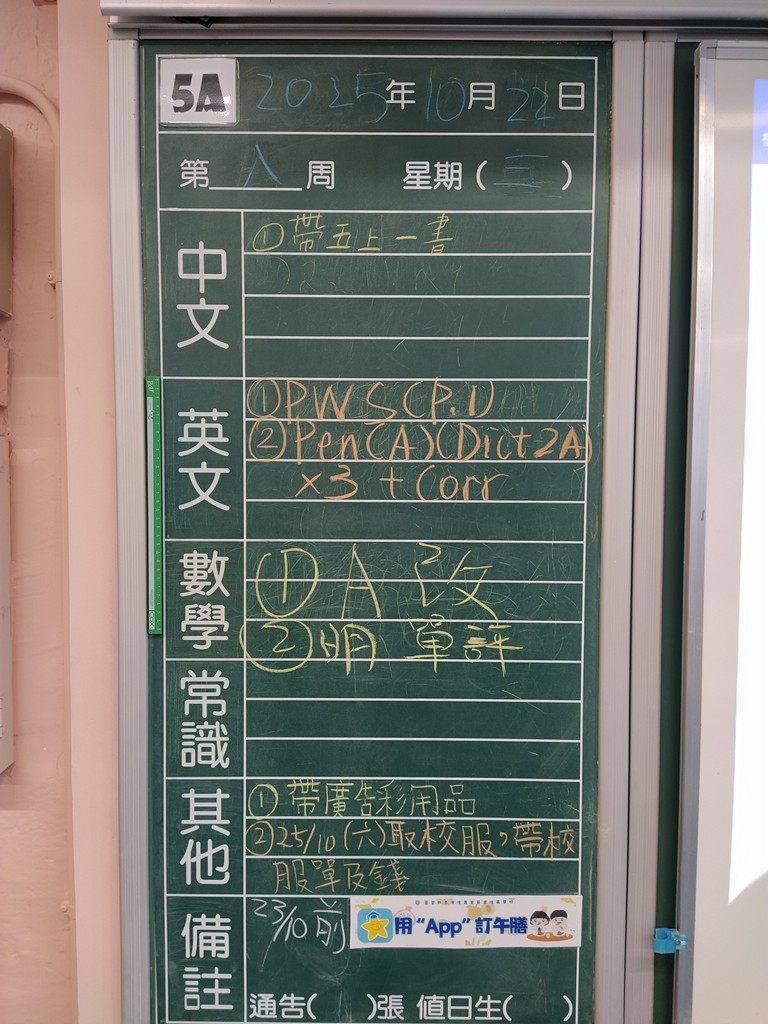 5A 2025年10月22日
第八周 星期(三)
中文
①帶五上一書
英文
①PWS(P.1)
②Pen(A)(Dict2A)
×3+Corr
數學
①A改
②明單評
常識
其他
①帶廣告彩用品
②25/10(六)取校服,帶校
服單及錢
備註
23/10前
用"App"訂午膳
通告( )張 值日生( )